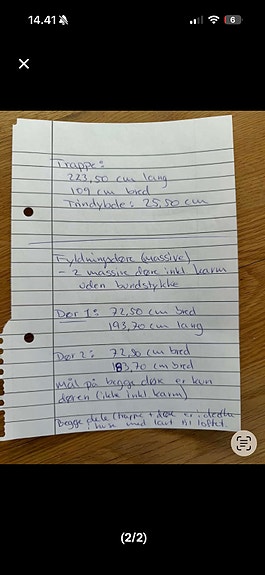 14.41
6
Trappe:
223,50 cm lang
109 cm bred
Trindybde: 25,50 cm
Fyldningsdøre (massive)
- 2 massive døre inkl karm
uden bundstykke
Dør 1: 72,50 cm bred
193,70 cm lang
Dør 2: 72,50 cm bred
183,70 cm bred
mål på begge døre er kun
døren (ikke inkl karm)
Begge dele (trappe + døre er ideelle
i huse med lavt til loftet.
(2/2)